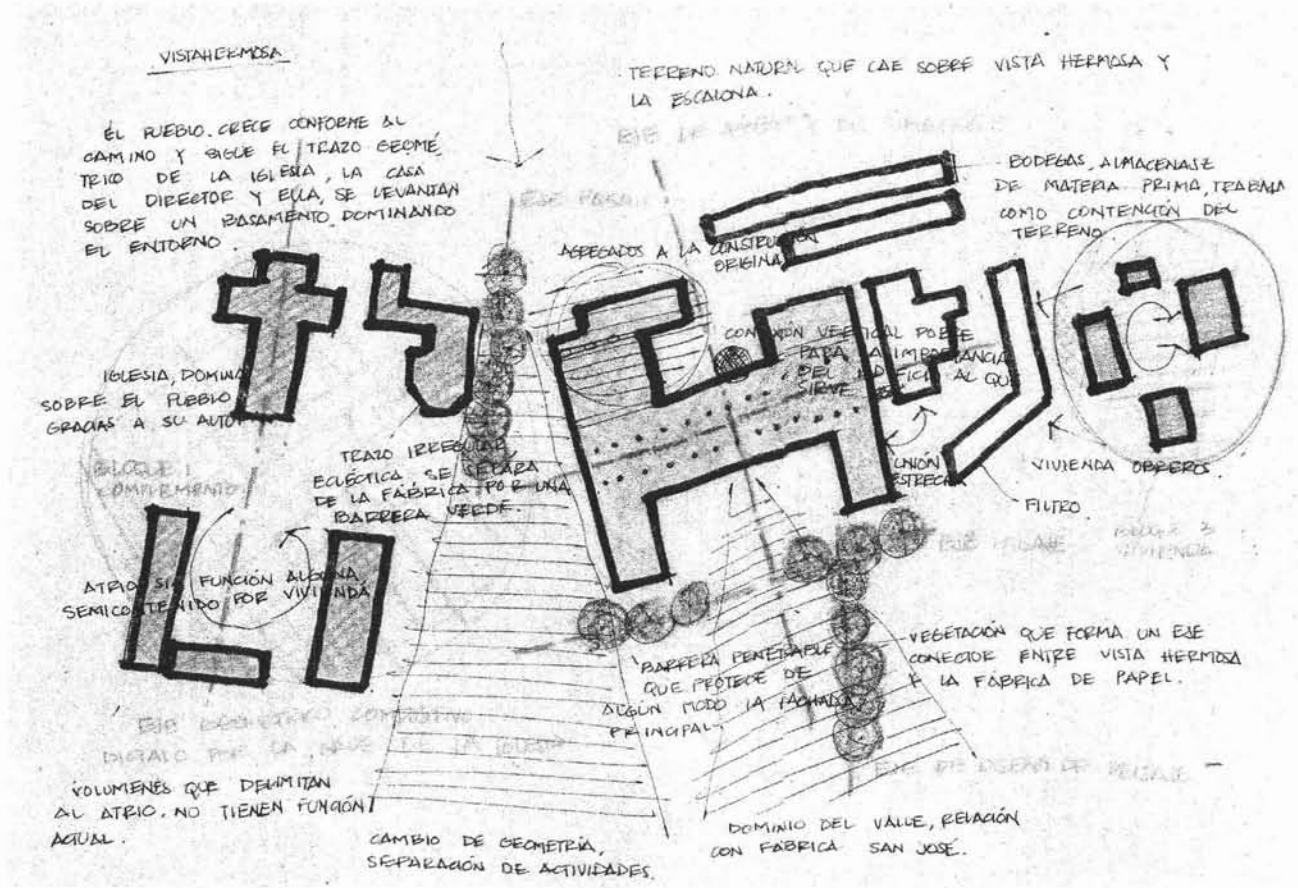 VISTAHERMOSA
TERRENO NATURAL QUE CAE SOBRE VISTA HERMOSA Y
LA ESCALONA.
EL PUEBLO. CRECE CONFORME AL
CAMINO Y SIGUE EL TRAZO GEOMÉ
TRICO DE LA IGLESIA, LA CASA
DEL DIRECTOR Y ELLA, SE LEVANTAN
SOBRE UN BASAMENTO DOMINANDO
EL ENTORNO.
BODEGAS, ALMACENAJE
DE MATERIA PRIMA, TRABAJA
COMO CONTENCIÓN DEL
TERRENO.
AGREGADOS A LA CONSTRUCCIÓN
ORIGINAL
CONEXIÓN VERTICAL POBRE
PARA LA IMPORTANCIA
DEL EDIFICIO AL QUE
SIRVE
IGLESIA, DOMINA
SOBRE EL PUEBLO
GRACIAS A SU
TRAZO IRREGULAR
ECLÉCTICA SE SEPARA
DE LA FÁBRICA POR UNA
BARRERA VERDE.
BLOQUE 1
COMPLEMENTO
UNIÓN
ESTRECHA
VIVIENDA OBREROS.
FILTRO
EJE PAISAJE
VIVIENDA
ATRIO SIN FUNCIÓN ALGUNA
SEMICONTENIDO POR VIVIENDA
BARRERA PENETRABLE
QUE PROTEGE DE
ALGÚN MODO LA FACHADA
PRINCIPAL
VEGETACIÓN QUE FORMA UN EJE
CONECTOR ENTRE VISTA HERMOSA
Y LA FÁBRICA DE PAPEL.
EJE GEOMÉTRICO COMPOSITIVO
DICTADO POR LA NAVE DE LA IGLESIA
VOLUMENES QUE DELIMITAN
AL ATRIO. NO TIENEN FUNCIÓN
ACTUAL.
CAMBIO DE GEOMETRÍA,
SEPARACIÓN DE ACTIVIDADES.
DOMINIO DEL VALLE, RELACIÓN
CON FÁBRICA SAN JOSÉ.